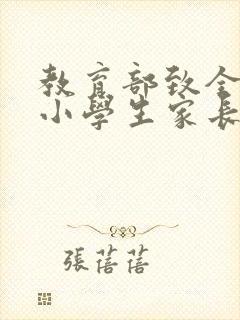 教育部致全
小學生家長
張蓓蓓